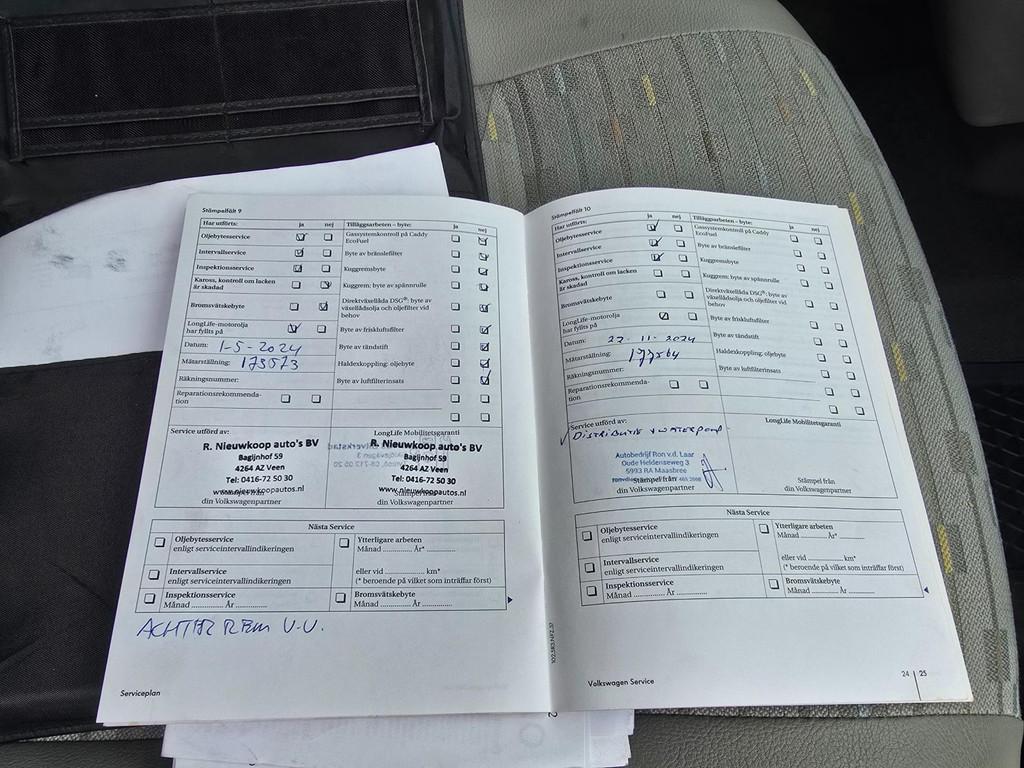 Stämpelfält 9
Har utförts: ja nej Tilläggsarbeten – byte: ja nej
Oljebytesservice Gassystemkontroll på Caddy
EcoFuel
Intervallservice Byte av bränslefilter
Inspektionsservice Kuggremsbyte
Kaross, kontroll om lacken
är skadad
Kuggrem: byte av spännrulle
Bromsvätskebyte Direktväxellåda DSG®: byte av
växellådsolja och oljefilter vid
behov
LongLife-motorolja
har fyllts på
Byte av friskluftsfilter
Datum: 1-5-2024 Byte av tändstift
Mätarställning: 173573 Haldexkoppling: oljebyte
Räkningsnummer: Byte av luftfilterinsats
Reparationsrekommenda-
tion
Service utförd av: LongLife Mobilitetsgaranti
R. Nieuwkoop auto's BV R. Nieuwkoop auto's BV
Bagijnhof 59 Bagijnhof 59
4264 AZ Veen 4264 AZ Veen
Tel: 0416-72 50 30 Tel: 0416-72 50 30
www.nieuwkoopautos.nl www.nieuwkoopautos.nl
Stämpel från Stämpel från
din Volkswagenpartner din Volkswagenpartner
Nästa Service
Oljebytesservice
enligt serviceintervallindikeringen
Ytterligare arbeten
Månad .............. År* ..............
Intervallservice
enligt serviceintervallindikeringen
eller vid .................. km*
(* beroende på vilket som inträffar först)
Inspektionsservice
Månad .............. År ..............
Bromsvätskebyte
Månad .............. År ..............
ACHTER REM V.V.
Serviceplan
102.5R3.NFZ.37
Stämpelfält 10
Har utförts: ja nej Tilläggsarbeten – byte: ja nej
Oljebytesservice Gassystemkontroll på Caddy
EcoFuel
Intervallservice Byte av bränslefilter
Inspektionsservice Kuggremsbyte
Kaross, kontroll om lacken
är skadad
Kuggrem: byte av spännrulle
Bromsvätskebyte Direktväxellåda DSG®: byte av
växellådsolja och oljefilter vid
behov
LongLife-motorolja
har fyllts på
Byte av friskluftsfilter
Datum: 22-11-2024 Byte av tändstift
Mätarställning: 177564 Haldexkoppling: oljebyte
Räkningsnummer: Byte av luftfilterinsats
Reparationsrekommenda-
tion
Service utförd av: LongLife Mobilitetsgaranti
DISTRIBUTIE + WATERPOMP
Autobedrijf Ron v.d. Laar
Oude Heldenseweg 3
5993 RA Maasbree
Stämpel från Stämpel från
din Volkswagenpartner din Volkswagenpartner
Nästa Service
Oljebytesservice
enligt serviceintervallindikeringen
Ytterligare arbeten
Månad .............. År* ..............
Intervallservice
enligt serviceintervallindikeringen
eller vid .................. km*
(* beroende på vilket som inträffar först)
Inspektionsservice
Månad .............. År ..............
Bromsvätskebyte
Månad .............. År ..............
Volkswagen Service
24 | 25